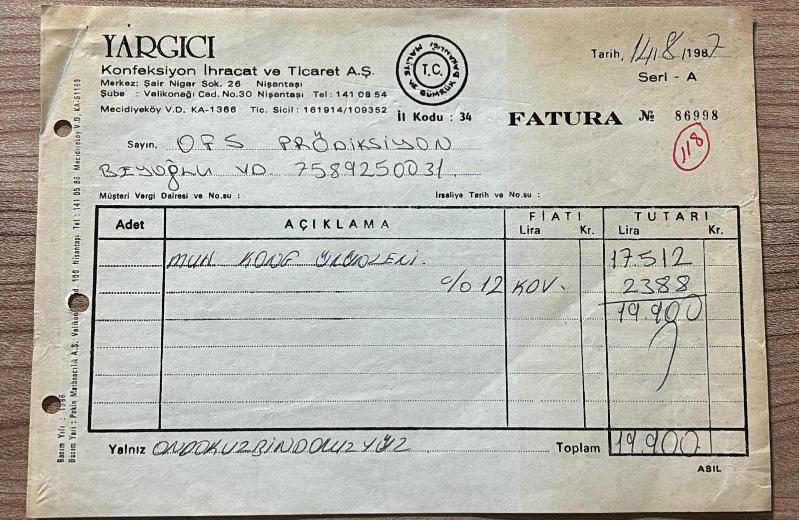 YARGICI
Konfeksiyon İhracat ve Ticaret A.Ş.
Merkez: Şair Nigar Sok. 26 Nişantaşı
Şube : Valikonağı Cad. No.30 Nişantaşı Tel : 141 08 54
Mecidiyeköy V.D. KA-1366 Tic. Sicil : 161914/109352
T.C.
MALİYE VE GÜMRÜK BAKANLIĞI
İl Kodu : 34
Tarih, 14/8/1987
Seri - A
FATURA № 86998
118
Sayın, OFS PRÖDİKSİYON
BEYOĞLU VD 7589250031
Müşteri Vergi Dairesi ve No.su : İrsaliye Tarih ve No.su :
Adet AÇIKLAMA FİATI TUTARI
Lira Kr. Lira Kr.
MUH KONF ÜRÜNLERİ. 17.512
%12 KDV. 2388
19.900
Yalnız ONDOKUZBİNDOKUZYÜZ Toplam 19.900
ASIL
Basım Yılı : 1986
Basım Yeri : Pekin Matbaacılık A.Ş. Valikonağı Cad. 109 Nişantaşı Tel : 141 05 86 Mecidiyeköy V.D. KA-51169